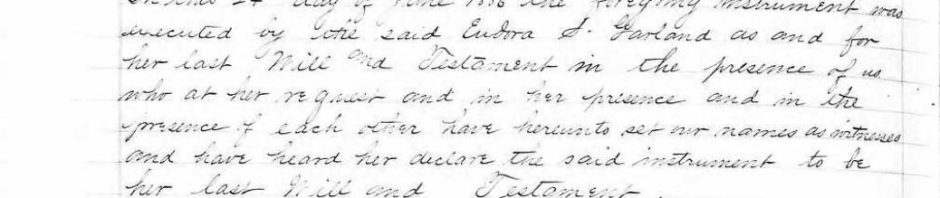 On this 24 day of June 18 the foregoing instrument was
executed by the said Eudora S. Garland as and for
her last Will and Testament in the presence of us
who at her request and in her presence and in the
presence of each other have hereunto set our names as witnesses
and have heard her declare the said instrument to be
her last Will and Testament.